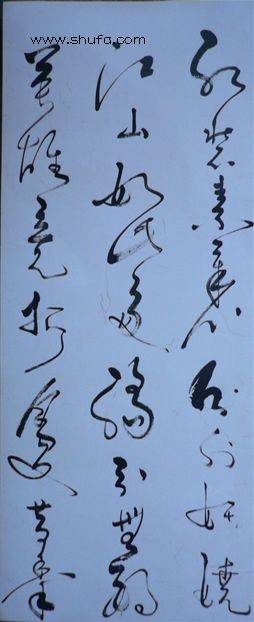 www.shufa.com
紅裝素裹分外妖嬈
江山如此多嬌引無數
英雄竞折腰